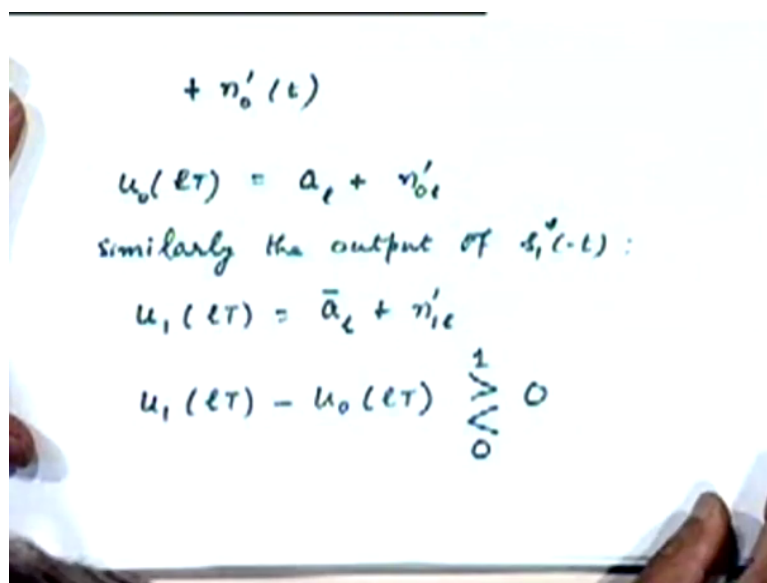 + n₀′(t)
u₀(ℓT) = a_ℓ + n′₀ℓ
similarly the output of s₁*(-t) :
u₁(ℓT) = ā_ℓ + n′₁ℓ
u₁(ℓT) - u₀(ℓT) ≷ 0
1
0